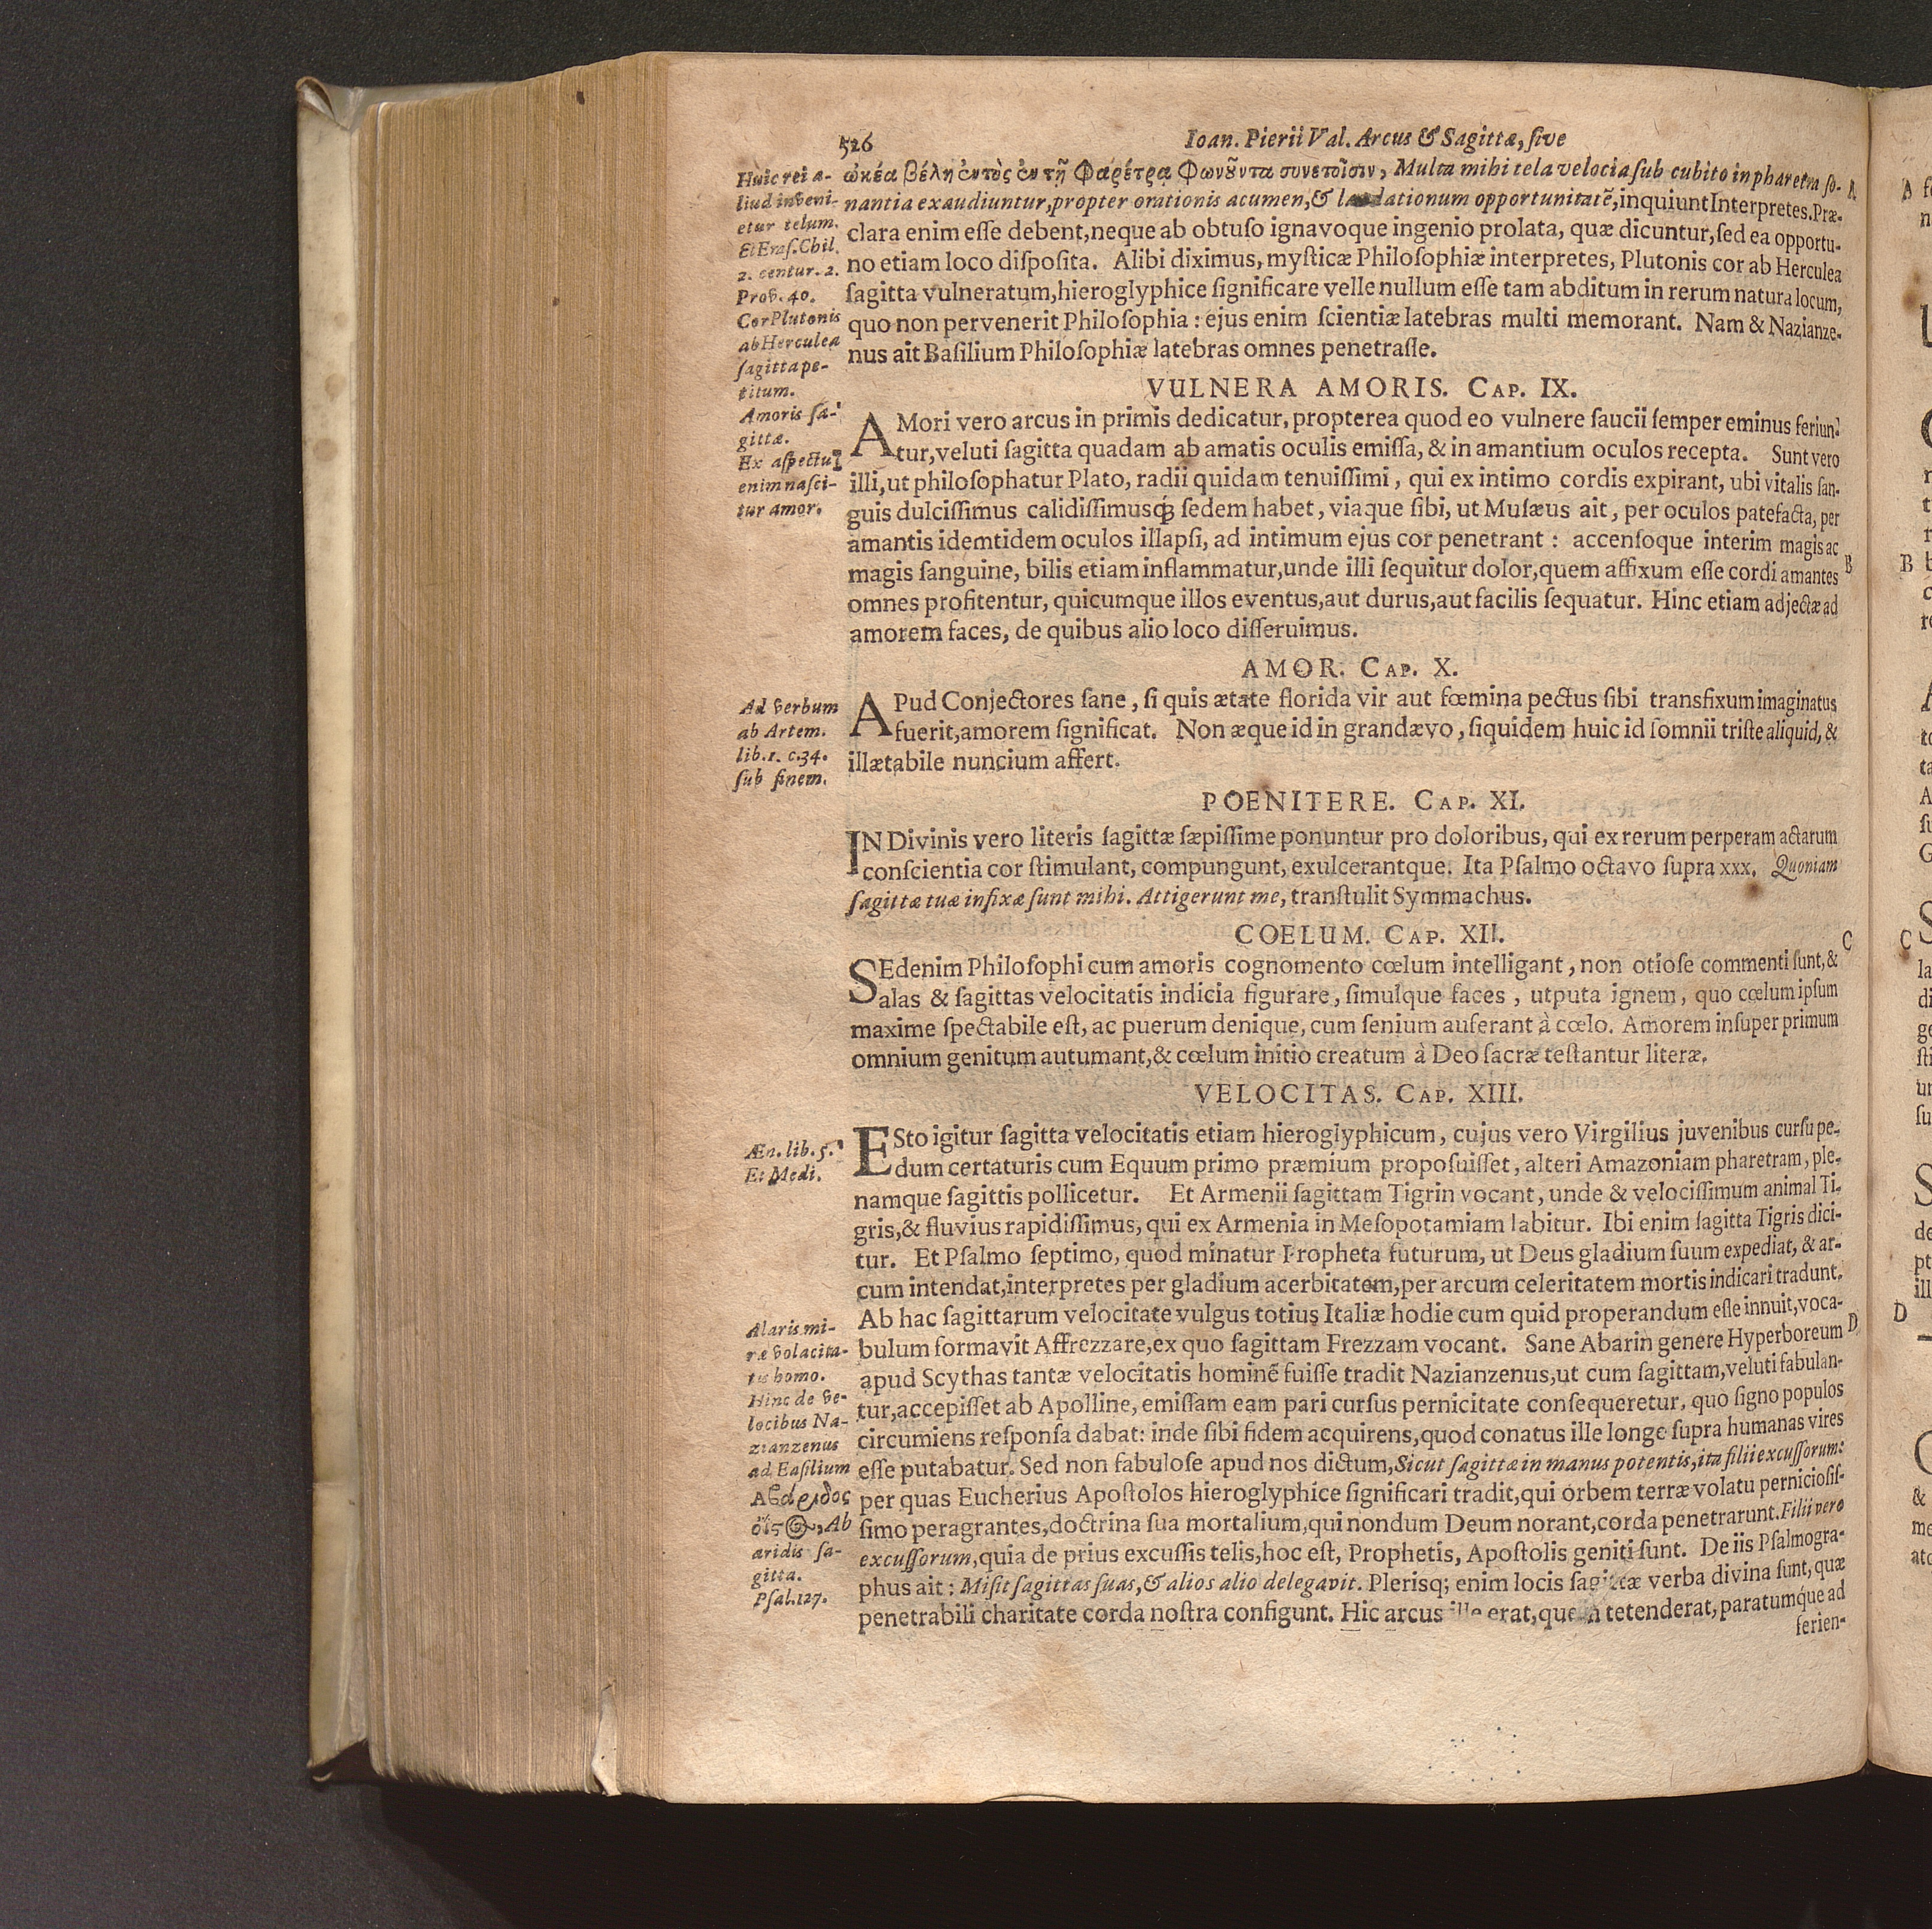 526
Ioan. Pierii Val. Arcus & Sagittæ, sive
ὠκέα βέλη ἐντὸς ἐν τῇ Φαρέτρᾳ Φωνοῦντα συνετοῖσιν, Multa mihi tela velocia sub cubito in pharetra so-
nantia exaudiuntur, propter orationis acumen, & laudationum opportunitatē, inquiunt Interpretes. Præ-
clara enim esse debent, neque ab obtuso ignavoque ingenio prolata, quæ dicuntur, sed ea opportu-
no etiam loco disposita. Alibi diximus, mysticæ Philosophiæ interpretes, Plutonis cor ab Herculea
sagitta vulneratum, hieroglyphice significare velle nullum esse tam abditum in rerum natura locum,
quo non pervenerit Philosophia: ejus enim scientiæ latebras multi memorant. Nam & Nazianze-
nus ait Basilium Philosophiæ latebras omnes penetrasse.
Huic rei a-
liud inveni-
etur telum.
Et Eras. Chil.
2. centur. 2.
Prov. 40.
Cor Plutonis
ab Herculea
sagitta pe-
titum.
A
VULNERA AMORIS. CAP. IX.
AMori vero arcus in primis dedicatur, propterea quod eo vulnere saucii semper eminus feriun-
tur, veluti sagitta quadam ab amatis oculis emissa, & in amantium oculos recepta. Sunt vero
illi, ut philosophatur Plato, radii quidam tenuissimi, qui ex intimo cordis expirant, ubi vitalis san-
guis dulcissimus calidissimusq́; sedem habet, viaque sibi, ut Musæus ait, per oculos patefacta, per
amantis idemtidem oculos illapsi, ad intimum ejus cor penetrant: accensoque interim magis ac
magis sanguine, bilis etiam inflammatur, unde illi sequitur dolor, quem affixum esse cordi amantes
omnes profitentur, quicumque illos eventus, aut durus, aut facilis sequatur. Hinc etiam adjectæ ad
amorem faces, de quibus alio loco disseruimus.
Amoris sa-
gittæ.
Ex aspectu
enim nasci-
tur amor.
B
AMOR. CAP. X.
APud Conjectores sane, si quis ætate florida vir aut fœmina pectus sibi transfixum imaginatus
fuerit, amorem significat. Non æque id in grandævo, siquidem huic id somnii triste aliquid, &
illætabile nuncium affert.
Ad verbum
ab Artem.
lib. 1. c. 34.
sub finem.
POENITERE. CAP. XI.
IN Divinis vero literis sagittæ sæpissime ponuntur pro doloribus, qui ex rerum perperam actarum
conscientia cor stimulant, compungunt, exulcerantque. Ita Psalmo octavo supra xxx. Quoniam
sagittæ tuæ infixæ sunt mihi. Attigerunt me, transtulit Symmachus.
COELUM. CAP. XII.
SEdenim Philosophi cum amoris cognomento cœlum intelligant, non otiose commenti sunt, &
alas & sagittas velocitatis indicia figurare, simulque faces, utputa ignem, quo cœlum ipsum
maxime spectabile est, ac puerum denique, cum senium auferant à cœlo. Amorem insuper primum
omnium genitum autumant, & cœlum initio creatum à Deo sacræ testantur literæ.
C
VELOCITAS. CAP. XIII.
ESto igitur sagitta velocitatis etiam hieroglyphicum, cujus vero Virgilius juvenibus cursu pe-
dum certaturis cum Equum primo præmium proposuisset, alteri Amazoniam pharetram, ple-
namque sagittis pollicetur. Et Armenii sagittam Tigrin vocant, unde & velocissimum animal Ti-
gris, & fluvius rapidissimus, qui ex Armenia in Mesopotamiam labitur. Ibi enim sagitta Tigris dici-
tur. Et Psalmo septimo, quod minatur Propheta futurum, ut Deus gladium suum expediat, & ar-
cum intendat, interpretes per gladium acerbitatem, per arcum celeritatem mortis indicari tradunt.
Ab hac sagittarum velocitate vulgus totius Italiæ hodie cum quid properandum esse innuit, voca-
bulum formavit Affrezzare, ex quo sagittam Frezzam vocant. Sane Abarin genere Hyperboreum
apud Scythas tantæ velocitatis hominē fuisse tradit Nazianzenus, ut cum sagittam, veluti fabulan-
tur, accepisset ab Apolline, emissam eam pari cursus pernicitate consequeretur, quo signo populos
circumiens responsa dabat: inde sibi fidem acquirens, quod conatus ille longe supra humanas vires
esse putabatur. Sed non fabulose apud nos dictum, Sicut sagittæ in manus potentis, ita filii excussorum:
per quas Eucherius Apostolos hieroglyphice significari tradit, qui orbem terræ volatu perniciosis-
simo peragrantes, doctrina sua mortalium, qui nondum Deum norant, corda penetrarunt. Filii vero
excussorum, quia de prius excussis telis, hoc est, Prophetis, Apostolis geniti sunt. De iis Psalmogra-
phus ait: Misit sagittas suas, & alios alio delegavit. Plerisq; enim locis sagittæ verba divina sunt, quæ
penetrabili charitate corda nostra configunt. Hic arcus ille erat, quem tetenderat, paratumque ad
ferien-
Æn. lib. 5.
Et Medi.
Alaris mi-
ræ volacita-
tis homo.
Hinc de ve-
locibus Na-
zianzenus
ad Basilium
Ἀβάριδος
ὀϊστὸς, Ab
aridis sa-
gitta.
Psal. 127.
D
A
B
C
D